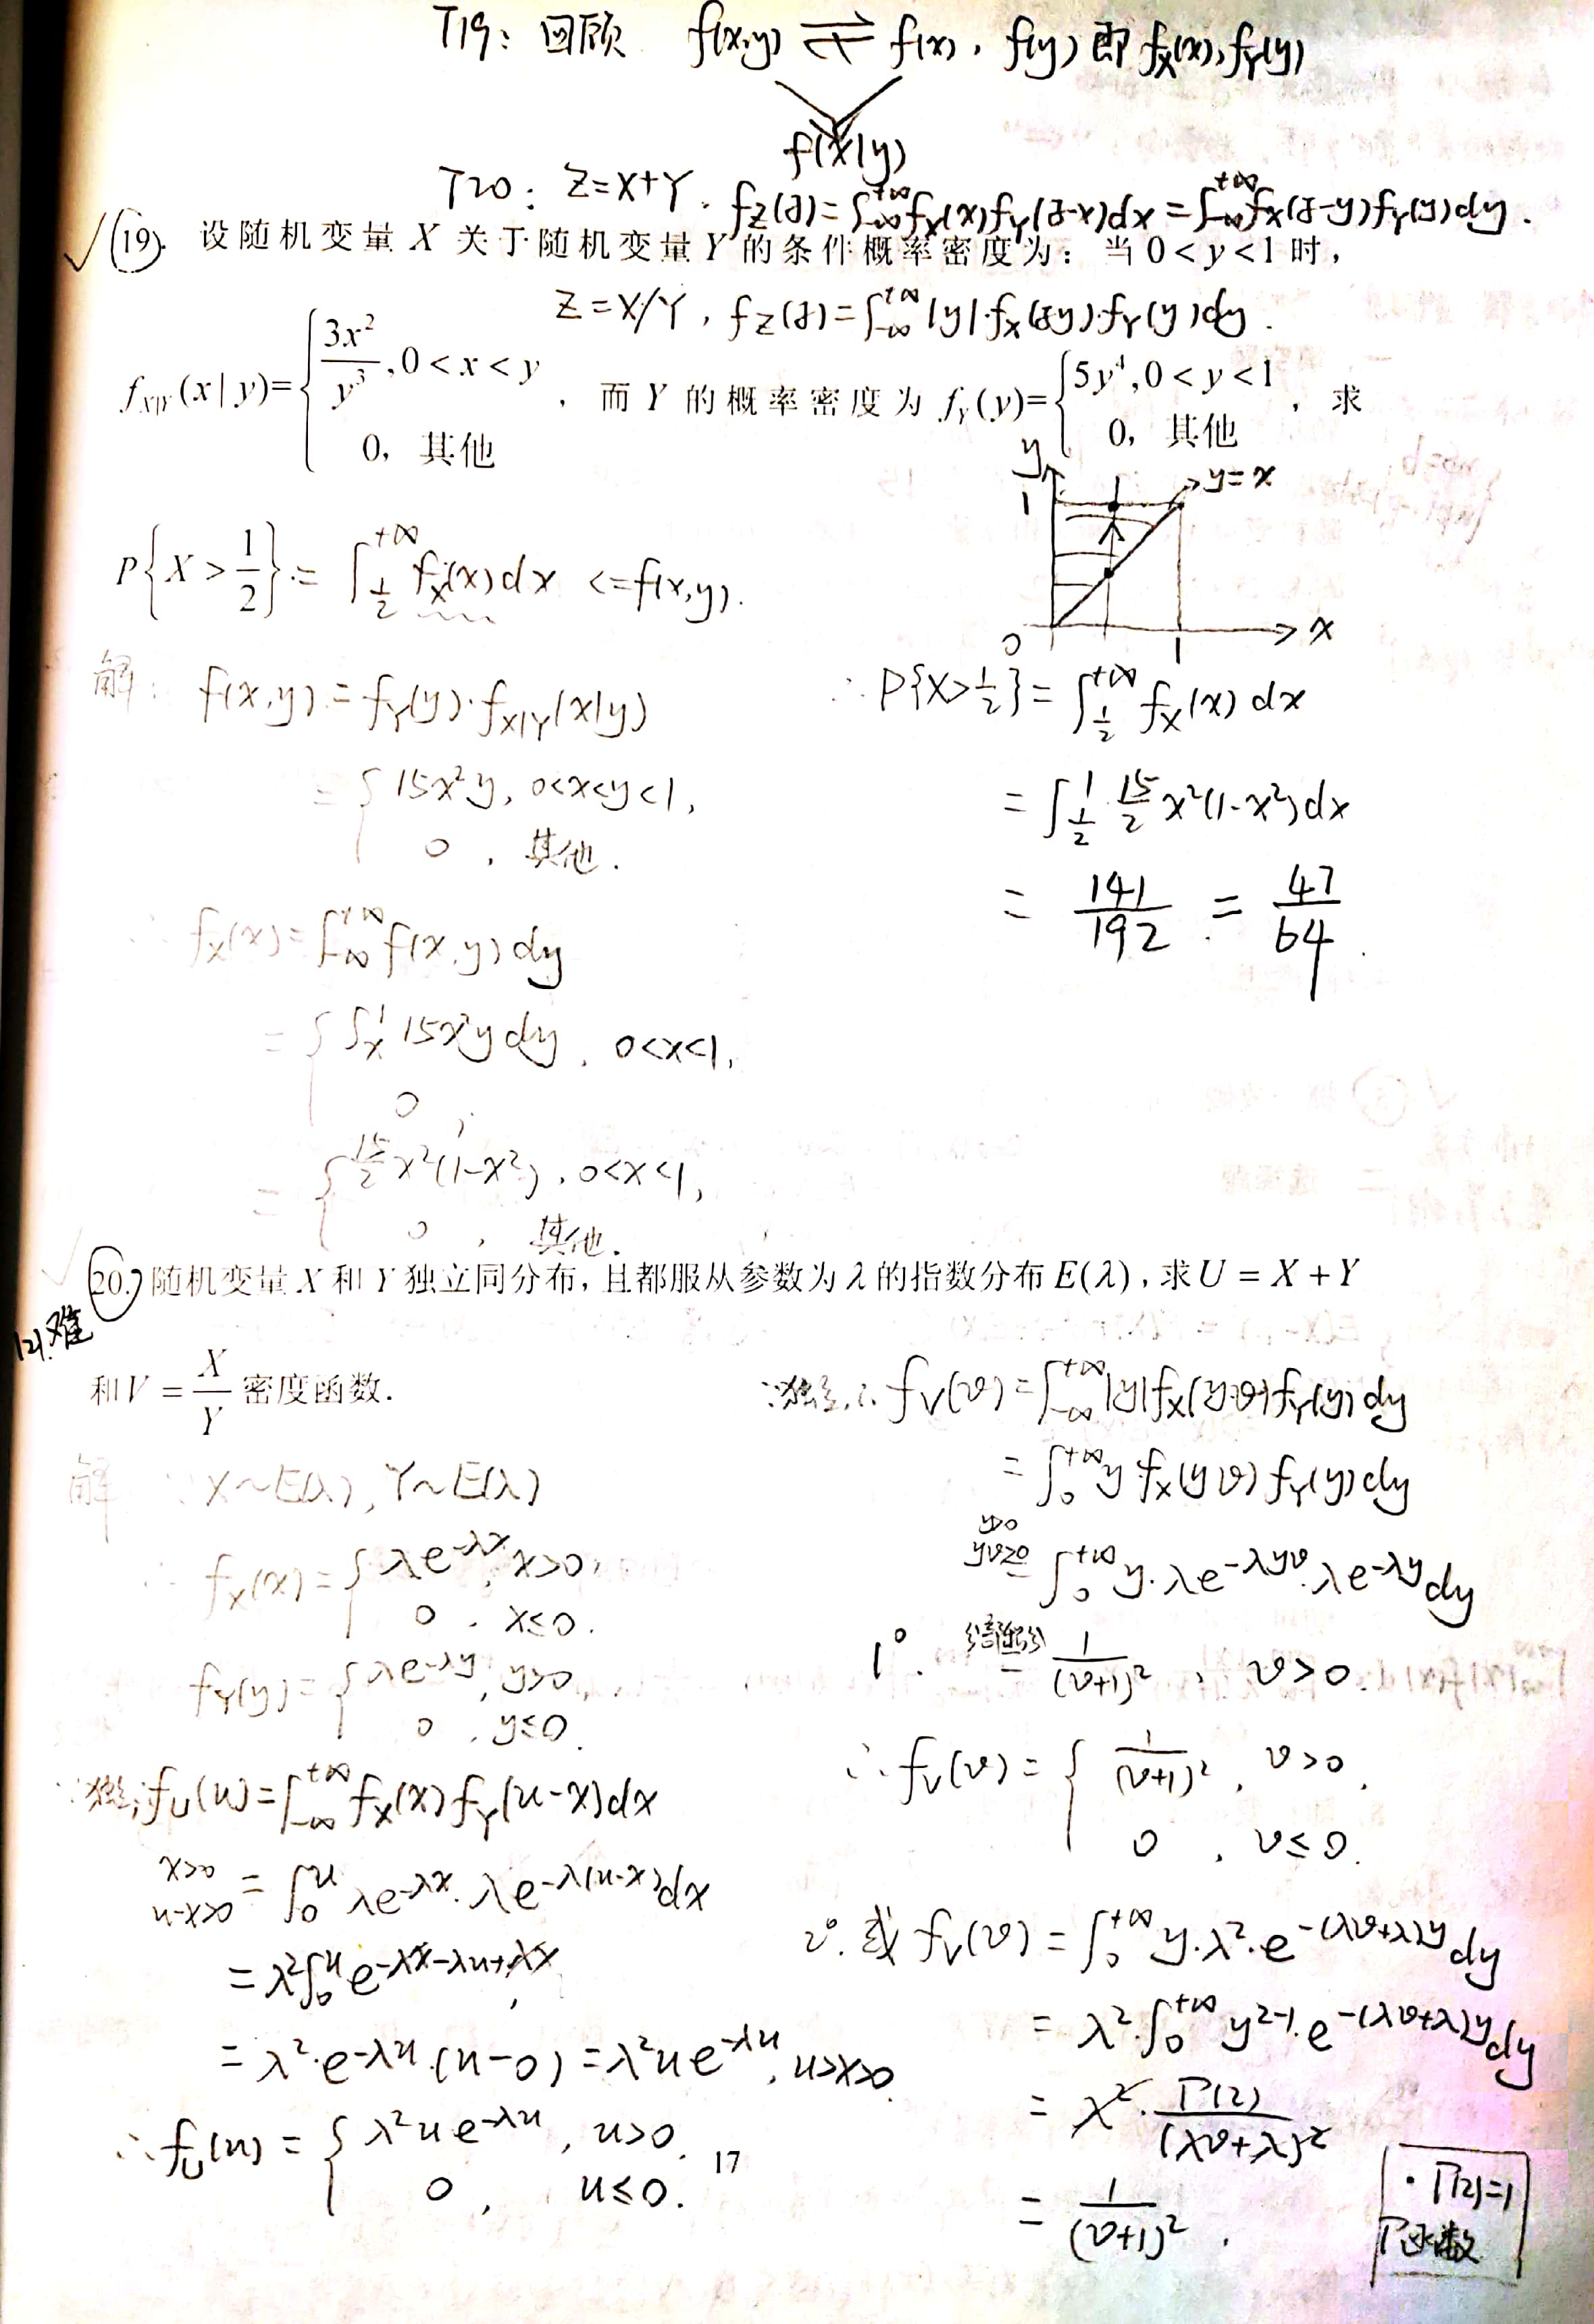 T19: 回顾 f(x,y) ⇌ f(x), f(y) 即 f_X(x), f_Y(y)
f(x|y)
T20: Z=X+Y, f_Z(z)=∫_{-∞}^{+∞} f_X(x)f_Y(z-x)dx=∫_{-∞}^{+∞} f_X(z-y)f_Y(y)dy.
√ 19. 设随机变量 X 关于随机变量 Y 的条件概率密度为：当 0<y<1 时，
Z=X/Y, f_Z(z)=∫_{-∞}^{+∞} |y|·f_X(zy)·f_Y(y)dy.
f_{X|Y}(x|y)={ 3x²/y³, 0<x<y ; 0, 其他 ，而 Y 的概率密度为 f_Y(y)={ 5y⁴, 0<y<1 ; 0, 其他 ，求
P{X>1/2} = ∫_{1/2}^{+∞} f_X(x)dx <= f(x,y).
y
1
y=x
0 1 x
解: f(x,y)=f_Y(y)·f_{X|Y}(x|y)
={ 15x²y, 0<x<y<1,
0, 其他.
∴ f_X(x)=∫_{-∞}^{+∞} f(x,y)dy
={ ∫_x^1 15x²y dy, 0<x<1,
0,
={ 15/2 x²(1-x²), 0<x<1,
0, 其他.
∴ P{X>1/2}=∫_{1/2}^{+∞} f_X(x)dx
=∫_{1/2}^1 15/2 x²(1-x²)dx
= 141/192 = 47/64.
√ 20. 随机变量 X 和 Y 独立同分布, 且都服从参数为 λ 的指数分布 E(λ), 求 U = X + Y
(2)难
和 V = X/Y 密度函数.
解 ∵ X~E(λ), Y~E(λ)
∴ f_X(x)={ λe^{-λx}, x>0,
0, x≤0.
f_Y(y)={ λe^{-λy}, y>0,
0, y≤0.
∵独立, f_U(u)=∫_{-∞}^{+∞} f_X(x)f_Y(u-x)dx
x>0 u-x>0 = ∫_0^u λe^{-λx}·λe^{-λ(u-x)}dx
=λ²∫_0^u e^{-λx-λu+λx}
=λ²·e^{-λu}·(u-0)=λ²ue^{-λu}, u>x>0.
∴ f_U(u)={ λ²ue^{-λu}, u>0.
0, u≤0.
∵独立, ∴ f_V(v)=∫_{-∞}^{+∞} |y|f_X(yv)f_Y(y)dy
=∫_0^{+∞} y f_X(yv) f_Y(y)dy
y>0 yv≥0 = ∫_0^{+∞} y·λe^{-λyv}·λe^{-λy}dy
1°. = 1/(v+1)², v>0.
∴ f_V(v)={ 1/(v+1)², v>0,
0, v≤0.
2°. 或 f_V(v)=∫_0^{+∞} y·λ²·e^{-(λv+λ)y}dy
=λ²·∫_0^{+∞} y^{2-1}·e^{-(λv+λ)y}dy
=λ²·Γ(2)/(λv+λ)²
=1/(v+1)².
·Γ(2)=1
Γ函数
17